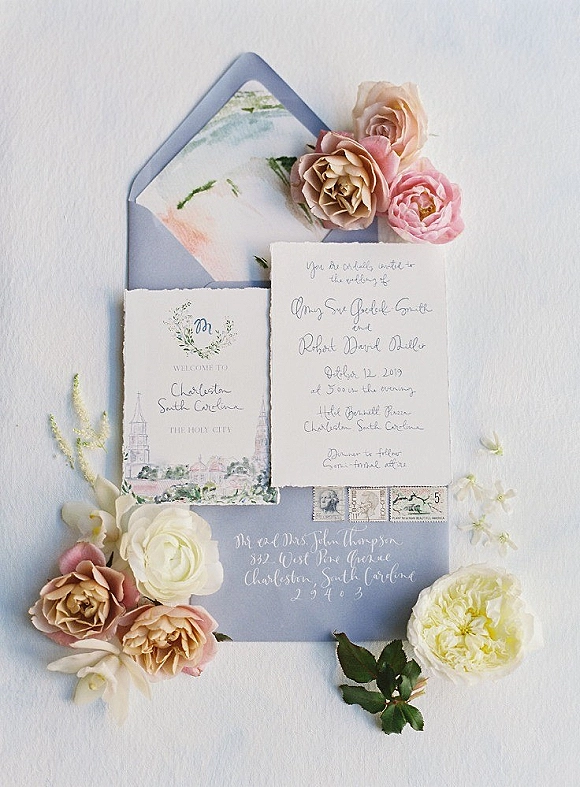 You are cordially invited to
the wedding of
Amy Sue Goedeck Smith
and
Robert David Miller
October 12 2019
at 5:00 in the evening
Hotel Bennett Plaza
Charleston, South Carolina
Dinner to follow
Semi-formal attire
M
WELCOME TO
Charleston
South Carolina
THE HOLY CITY
5
Mr and Mrs. John Thompson
832 West Pine Avenue
Charleston, South Carolina
29403